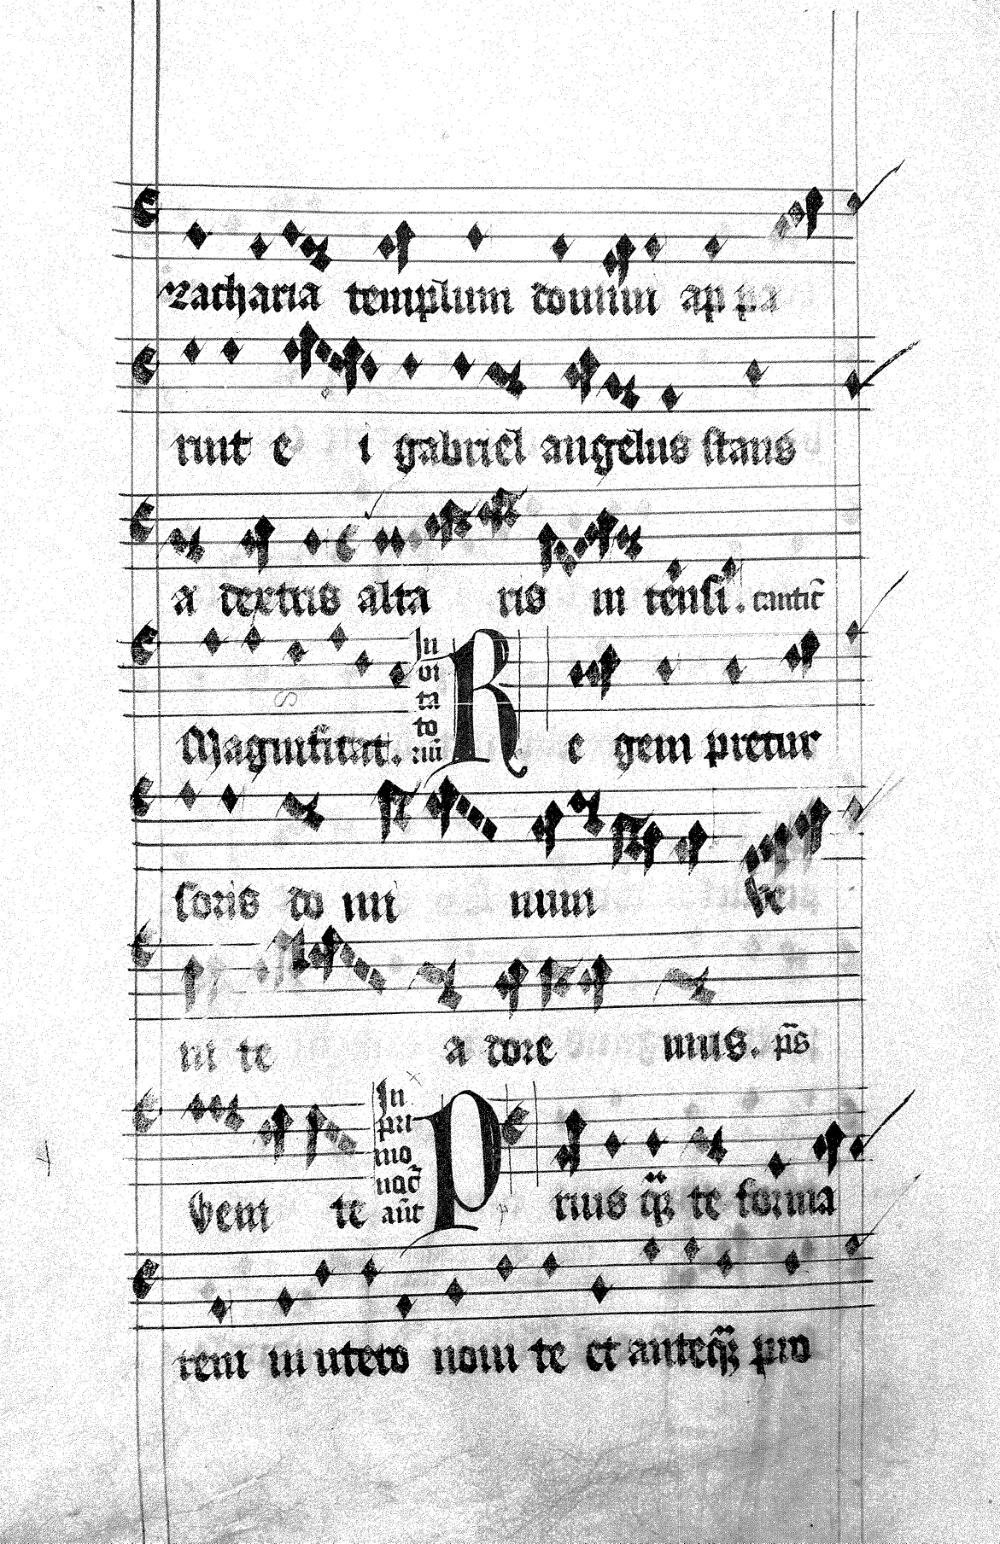 zacharia templum domini ap pa
ruit e i gabriel angelus stans
a dextris alta ris in censi. cantic̄
Magnificat. In vi ta to riū R e gem precur
soris do mi num ve
ni te a dore mus. p̄s
Veni te In pri mo noct̄ ān̄t P rius q̄ȝ te forma
rem in utero noui te et anteq̄ȝ pro